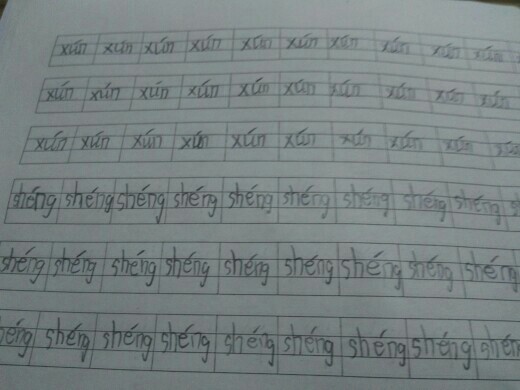 xún xún xún xún xún xún xún xún xún xún
xún xún xún xún xún xún xún xún xún xún
xún xún xún xún xún xún xún xún xún
shéng shéng shéng shéng shéng shéng shéng shéng shéng
shéng shéng shéng shéng shéng shéng shéng shéng shéng
shéng shéng shéng shéng shéng shéng shéng shéng